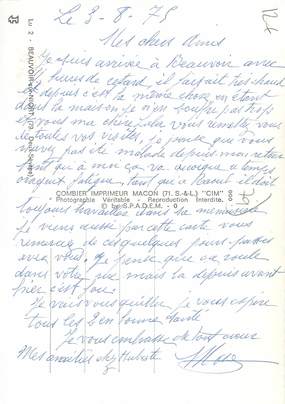 Le 3-8-75
Mes chers Amis
Je suis arrivée à Beauvoir avec
heures de retard il faisait très chaud
et depuis c'est la même chose en étant
dans la maison je n'en souffre pas trop
et vous ma chère Lola vous remettez vous
de toutes vos visites, je pense que vous
n'avez pas été malade depuis mon retour
tant qu'à moi ça va quoique le temps
orageux fatigue
toujours travailler dans la
Je viens aussi par cette carte vous
remercier de ces quelques jours passés
avec vous. Je pense que ça roule
dans votre rue mais là depuis avant
hier c'est fou.
Je vais vous quitter je vous espère
tous les 2 en bonne santé
je vous embrasse de tout cœur
Mes amitiés chez Huberte
Lu 2 - BEAUVOIR-sur-NIORT (79 - Deux-Sèvres)
COMBIER IMPRIMEUR MACON (71. S.-&-L.) "CIM"
Photographie Véritable - Reproduction Interdite.
© by S.P.A.D.E.M. - 0